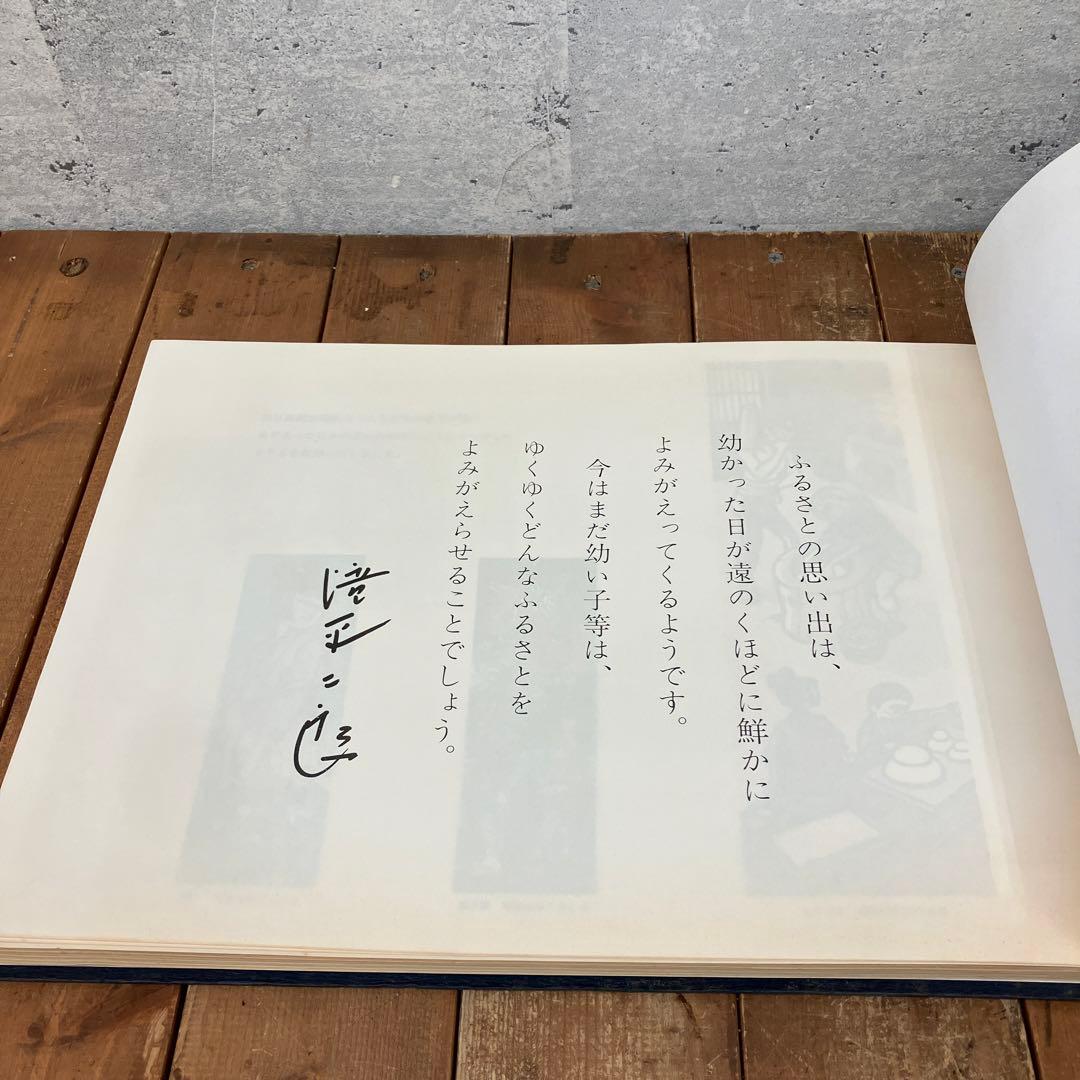 ふるさとの思い出は、
幼かった日が遠のくほどに鮮かに
よみがえってくるようです。
今はまだ幼い子等は、
ゆくゆくどんなふるさとを
よみがえらせることでしょう。
滝平二郎